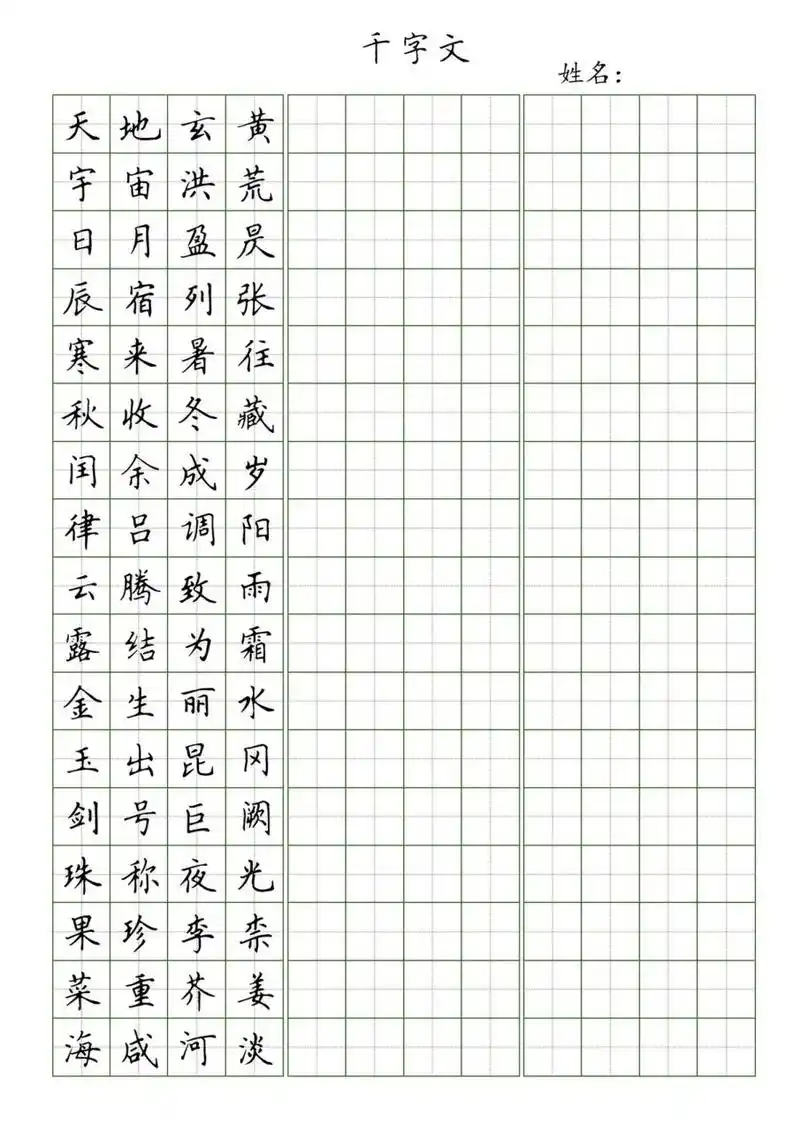 千字文
姓名：
天地玄黄
宇宙洪荒
日月盈昃
辰宿列张
寒来暑往
秋收冬藏
闰余成岁
律吕调阳
云腾致雨
露结为霜
金生丽水
玉出昆冈
剑号巨阙
珠称夜光
果珍李柰
菜重芥姜
海咸河淡